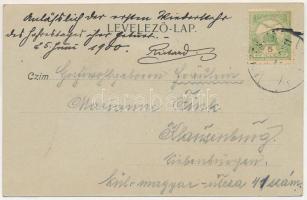 Anlässlich der ersten Wiederkehr
des Jahrestages ihrer Geburt. -
25 Juni 1900. Richard
LEVELEZŐ-LAP.
Czim Hochwohlgeboren Fräulein
Marianne
Klausenburg.
Siebenbürgen.
Kül-magyar-utcza 41 szám.